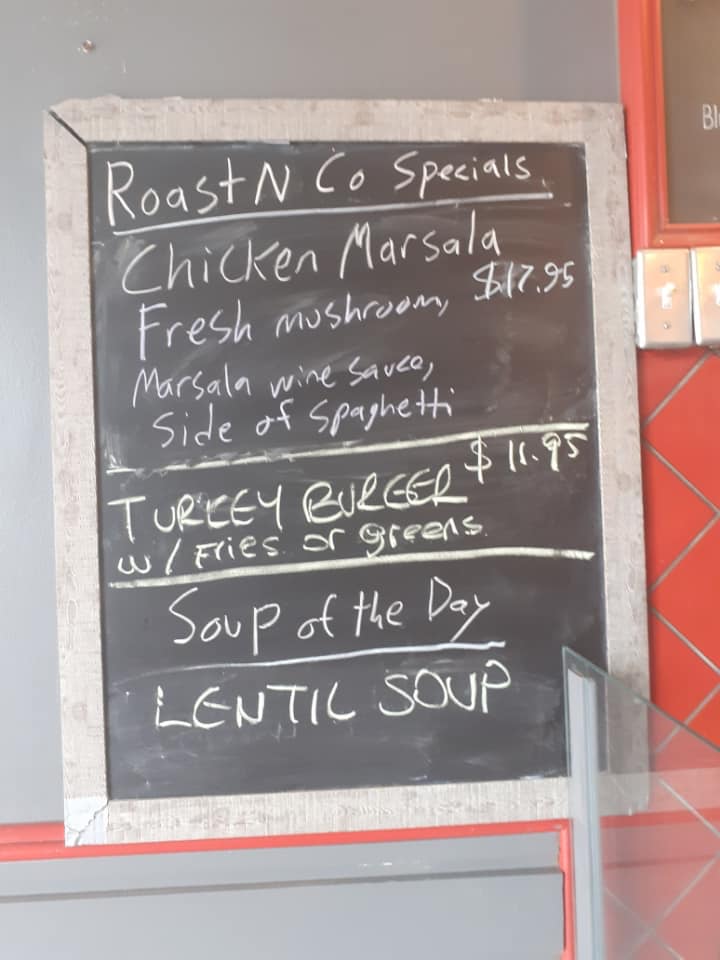 RoastN Co Specials
Chicken Marsala
$17.95
Fresh mushroom,
Marsala wine sauce,
Side of Spaghetti
$11.95
TURKEY BURGER
w/ Fries or greens
Soup of the Day
LENTIL SOUP